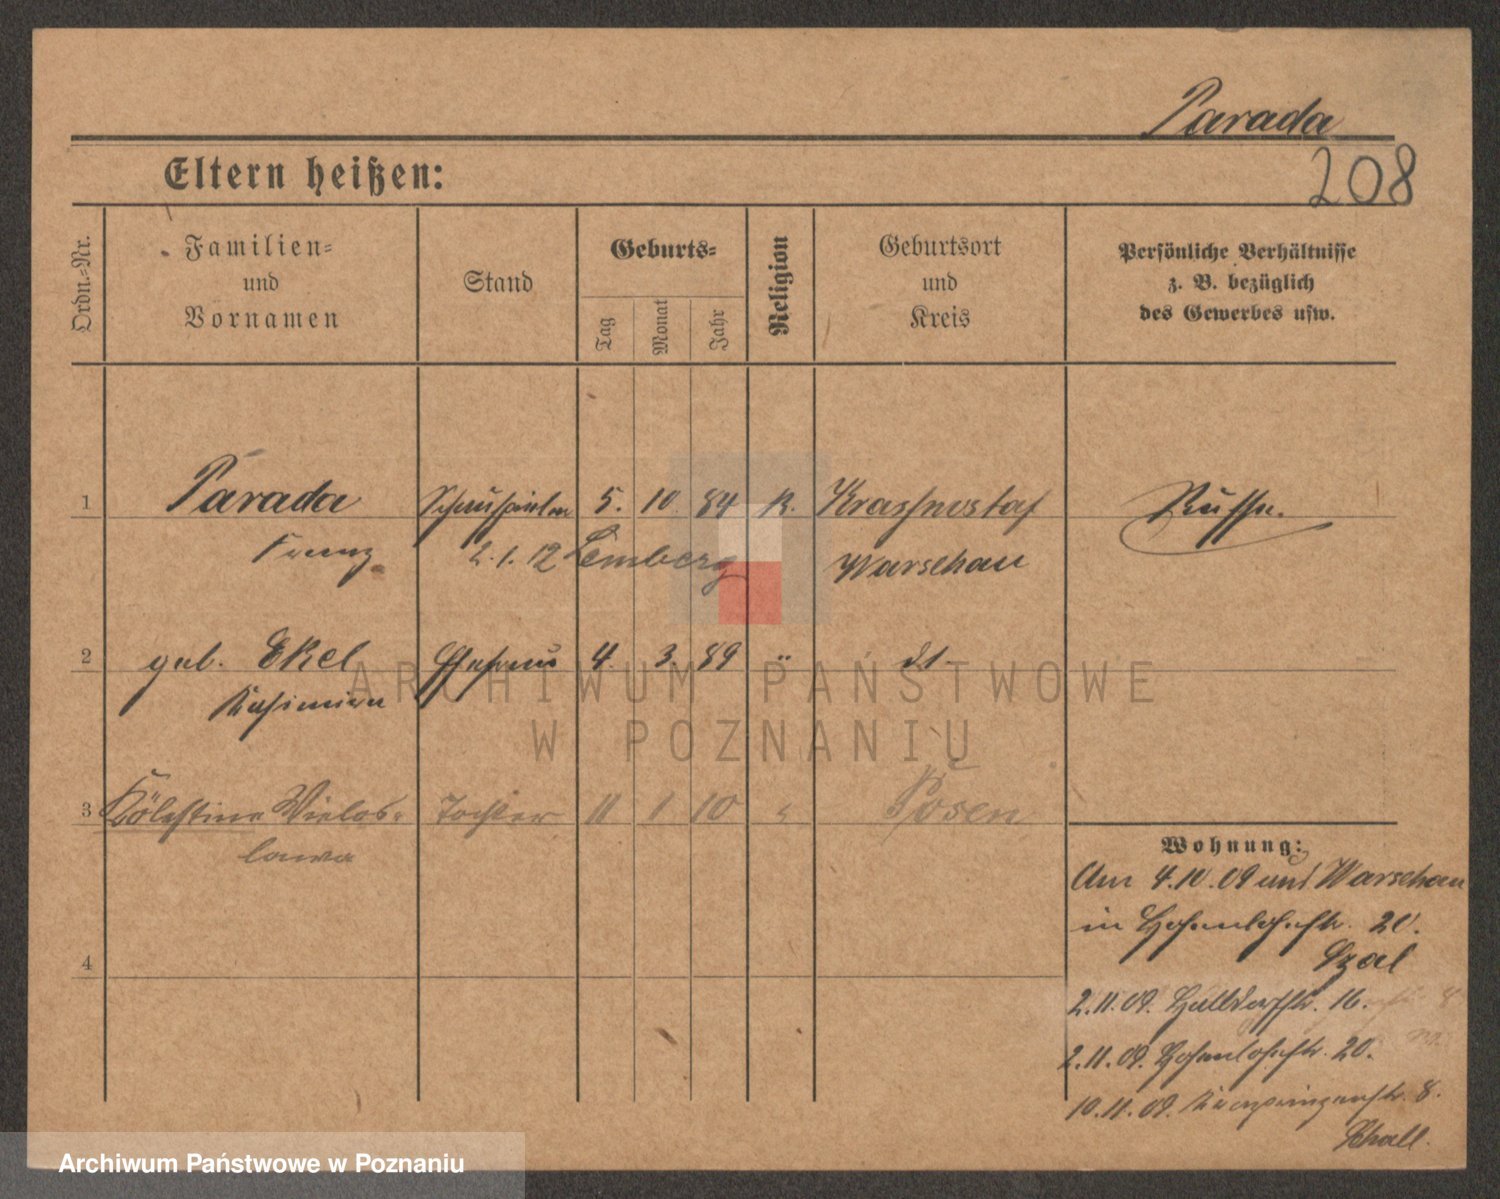 Parada
208
Eltern heißen:
Ordn.-Nr.
Familien-
und
Vornamen
Stand
Geburts-
Tag
Monat
Jahr
Religion
Geburtsort
und
Kreis
Persönliche Verhältnisse
z. B. bezüglich
des Gewerbes usw.
1 Parada Schauspieler 5. 10. 84 K. Krasnostaf Russe.
Franz 2.1.12 Lemberg Warschau
2 geb. Ekel Ehefrau 4. 3. 89 " dt.
Kasimira
3 Cölestine Wielos- Tochter 11 1 10 " Posen
lawa
4
Wohnung:
Am 4.10.09 und Warschau
in Hohenlohestr. 20.
2.11.09. 16.
2.11.09. Hohenlohestr. 20.
10.11.09. 8.
ARCHIWUM PAŃSTWOWE
W POZNANIU
Archiwum Państwowe w Poznaniu